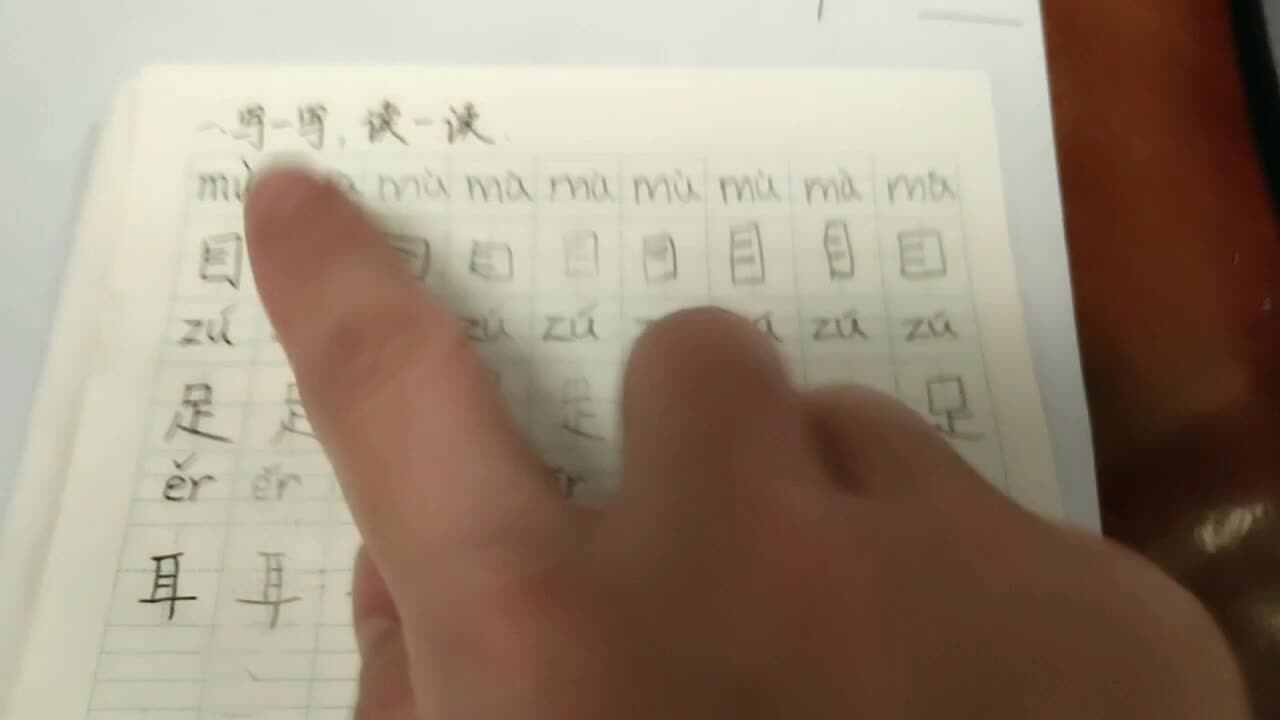 一写一写，读一读.
mù mù mù mù mù mù mù mù
目 目 目 目 目 目 目 目
zú zú zú zú zú
足 足 足 足
ěr ěr
耳 耳